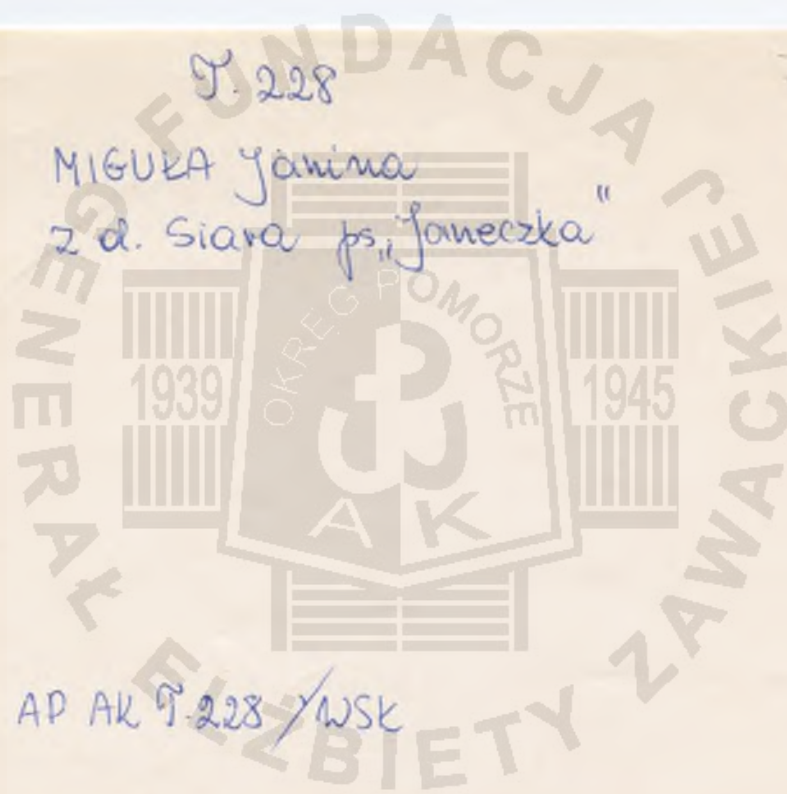 T. 228
MIGUŁA Janina
z d. Siara ps. „Janeczka"
AP AK T. 228 / WSK
FUNDACJA GENERAŁ ELŻBIETY ZAWACKIEJ
OKRĘG POMORZE
1939
1945
A K